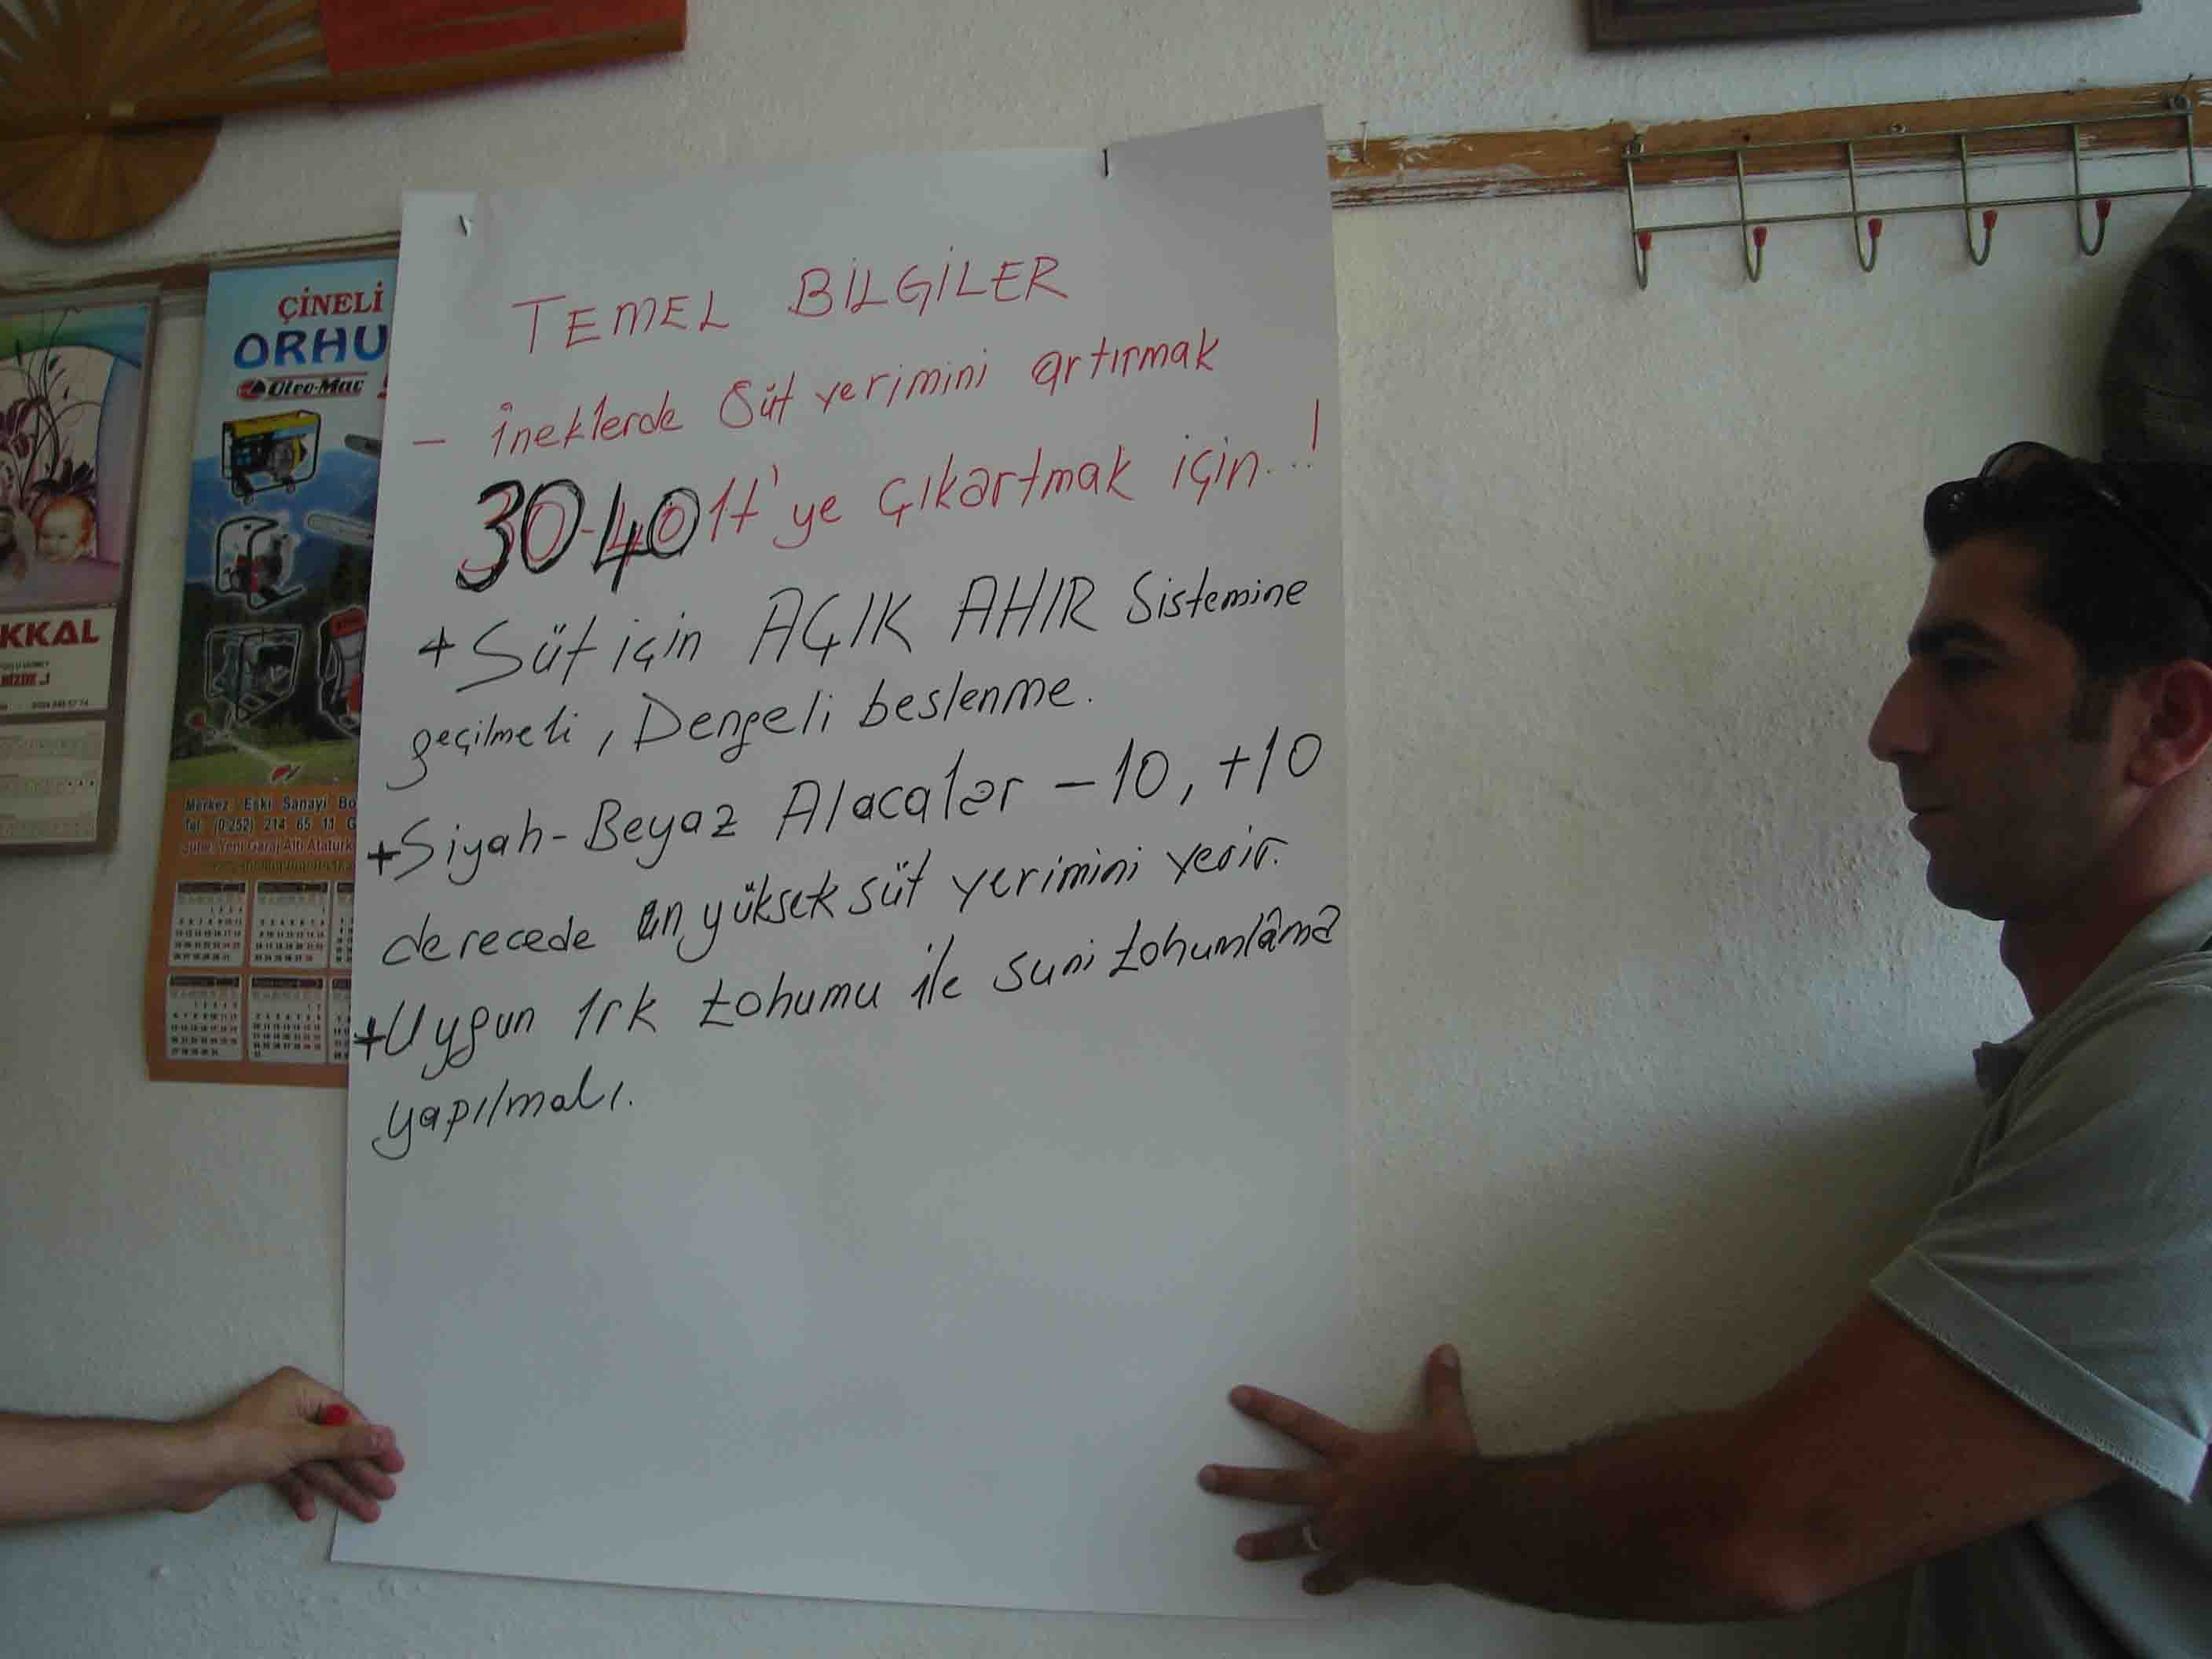 TEMEL BİLGİLER
- İneklerde Süt verimini artırmak
30-40 lt'ye çıkartmak için...!
+ Süt için AÇIK AHIR Sistemine
geçilmeli, Dengeli beslenme.
+ Siyah-Beyaz Alacalar -10, +10
derecede en yüksek süt verimini verir.
+ Uygun ırk tohumu ile suni tohumlama
yapılmalı.
ÇİNELİ
ORHU
Oleo-Mac
Merkez: Eski Sanayi Bo
Tel: (0.252) 214 65 11 G
Şube: Yeni Garaj Altı Atatürk
KKAL